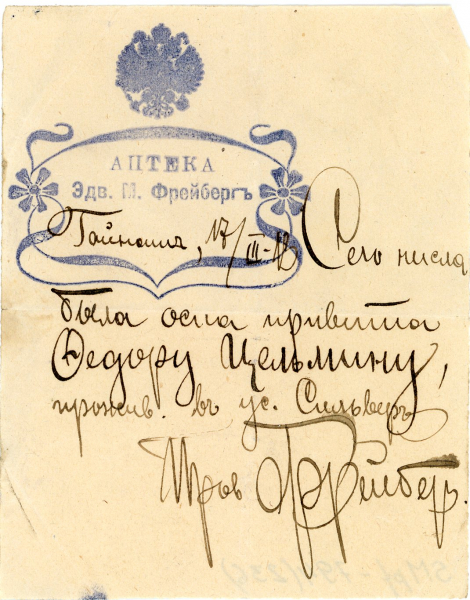 АПТЕКА
Эдв. М. Фрейбергъ
Гайнашъ, 17/III-12 Сего числа
была оспа привита
Ѳедору Цельмину,
прожив. въ ус. Сильверъ
Пров Фрейберг.